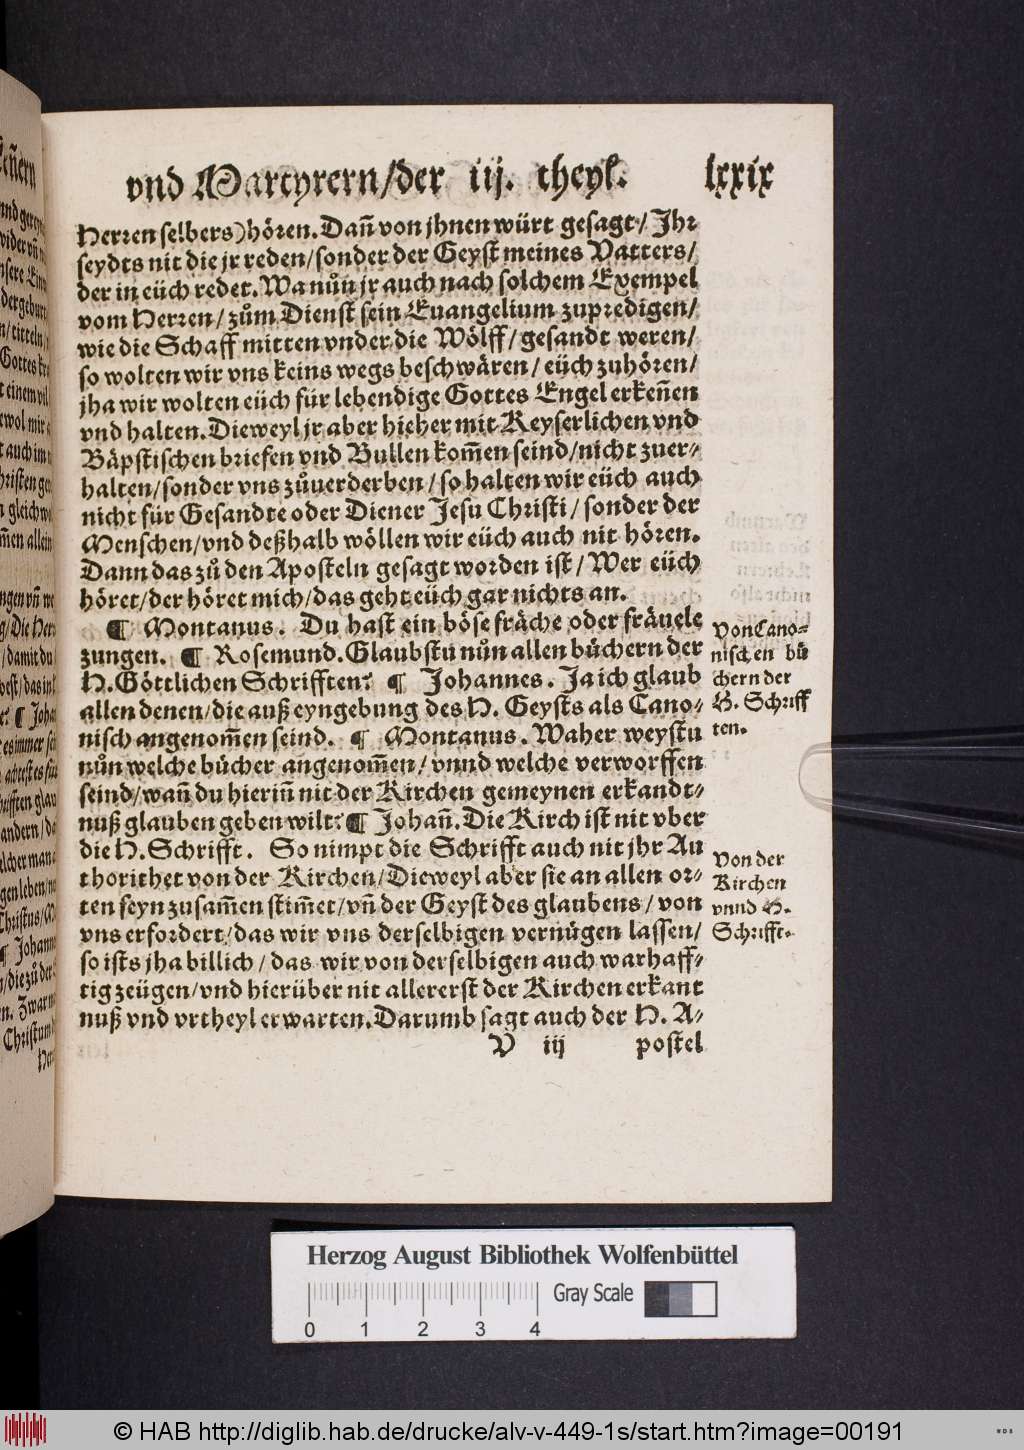 vnd Martyrern/der iij. theyl. lxxix
Herren selbers)hören. Dañ von jhnen würt gesagt/ Jhr
seydts nit die jr reden/sonder der Geyst meines Vatters/
der in eüch redet. Wa nůn jr auch nach solchem Exempel
vom Herren/ zům Dienst sein Euangelium zupredigen/
wie die Schaff mitten vnder die Wölff/ gesandt weren/
so wolten wir vns keins wegs beschwären/ eüch zuhören/
jha wir wolten eüch für lebendige Gottes Engel erkeñen
vnd halten. Dieweyl jr aber hieher mit Keyserlichen vnd
Bäpstischen briefen vnd Bullen kom̄en seind/nicht zuer⸗
halten/sonder vns zůuerderben/ so halten wir eüch auch
nicht für Gesandte oder Diener Jesu Christi/ sonder der
Menschen/vnd deßhalb wöllen wir eüch auch nit hören.
Dann das zů den Aposteln gesagt worden ist/ Wer eüch
höret/der höret mich/das geht eüch gar nichts an.
¶ Montanus. Du hast ein böse fräche oder fräuele
zungen. ¶ Rosemund. Glaubstu nůn allen bůchern der
H. Göttlichen Schrifften? ¶ Johannes. Ja ich glaub
allen denen/die auß eyngebung des H. Geysts als Cano⸗
nisch angenom̄en seind. ¶ Montanus. Waher weystu
nůn welche bůcher angenom̄en/ vnnd welche verworffen
seind/wañ du hieriñ nit der Kirchen gemeynen erkandt⸗
nuß glauben geben wilt? ¶ Johañ. Die Kirch ist nit vber
die H. Schrifft. So nimpt die Schrifft auch nit jhr Au
thorithet von der Kirchen/ Dieweyl aber sie an allen or⸗
ten seyn zusam̄en stim̄et/vñ der Geyst des glaubens/ von
vns erfordert/das wir vns derselbigen vernůgen lassen/
so ists jha billich/ das wir von derselbigen auch warhaff⸗
tig zeügen/vnd hierüber nit allererst der Kirchen erkant
nuß vnd vrtheyl erwarten. Darumb sagt auch der H. A⸗
V iij postel
Von Cano⸗
nischen bů
chern der
H. Schriff
ten.
Von der
Kirchen
vnnd H.
Schrifft.
Herzog August Bibliothek Wolfenbüttel
Gray Scale
0 1 2 3 4
© HAB http://diglib.hab.de/drucke/alv-v-449-1s/start.htm?image=00191